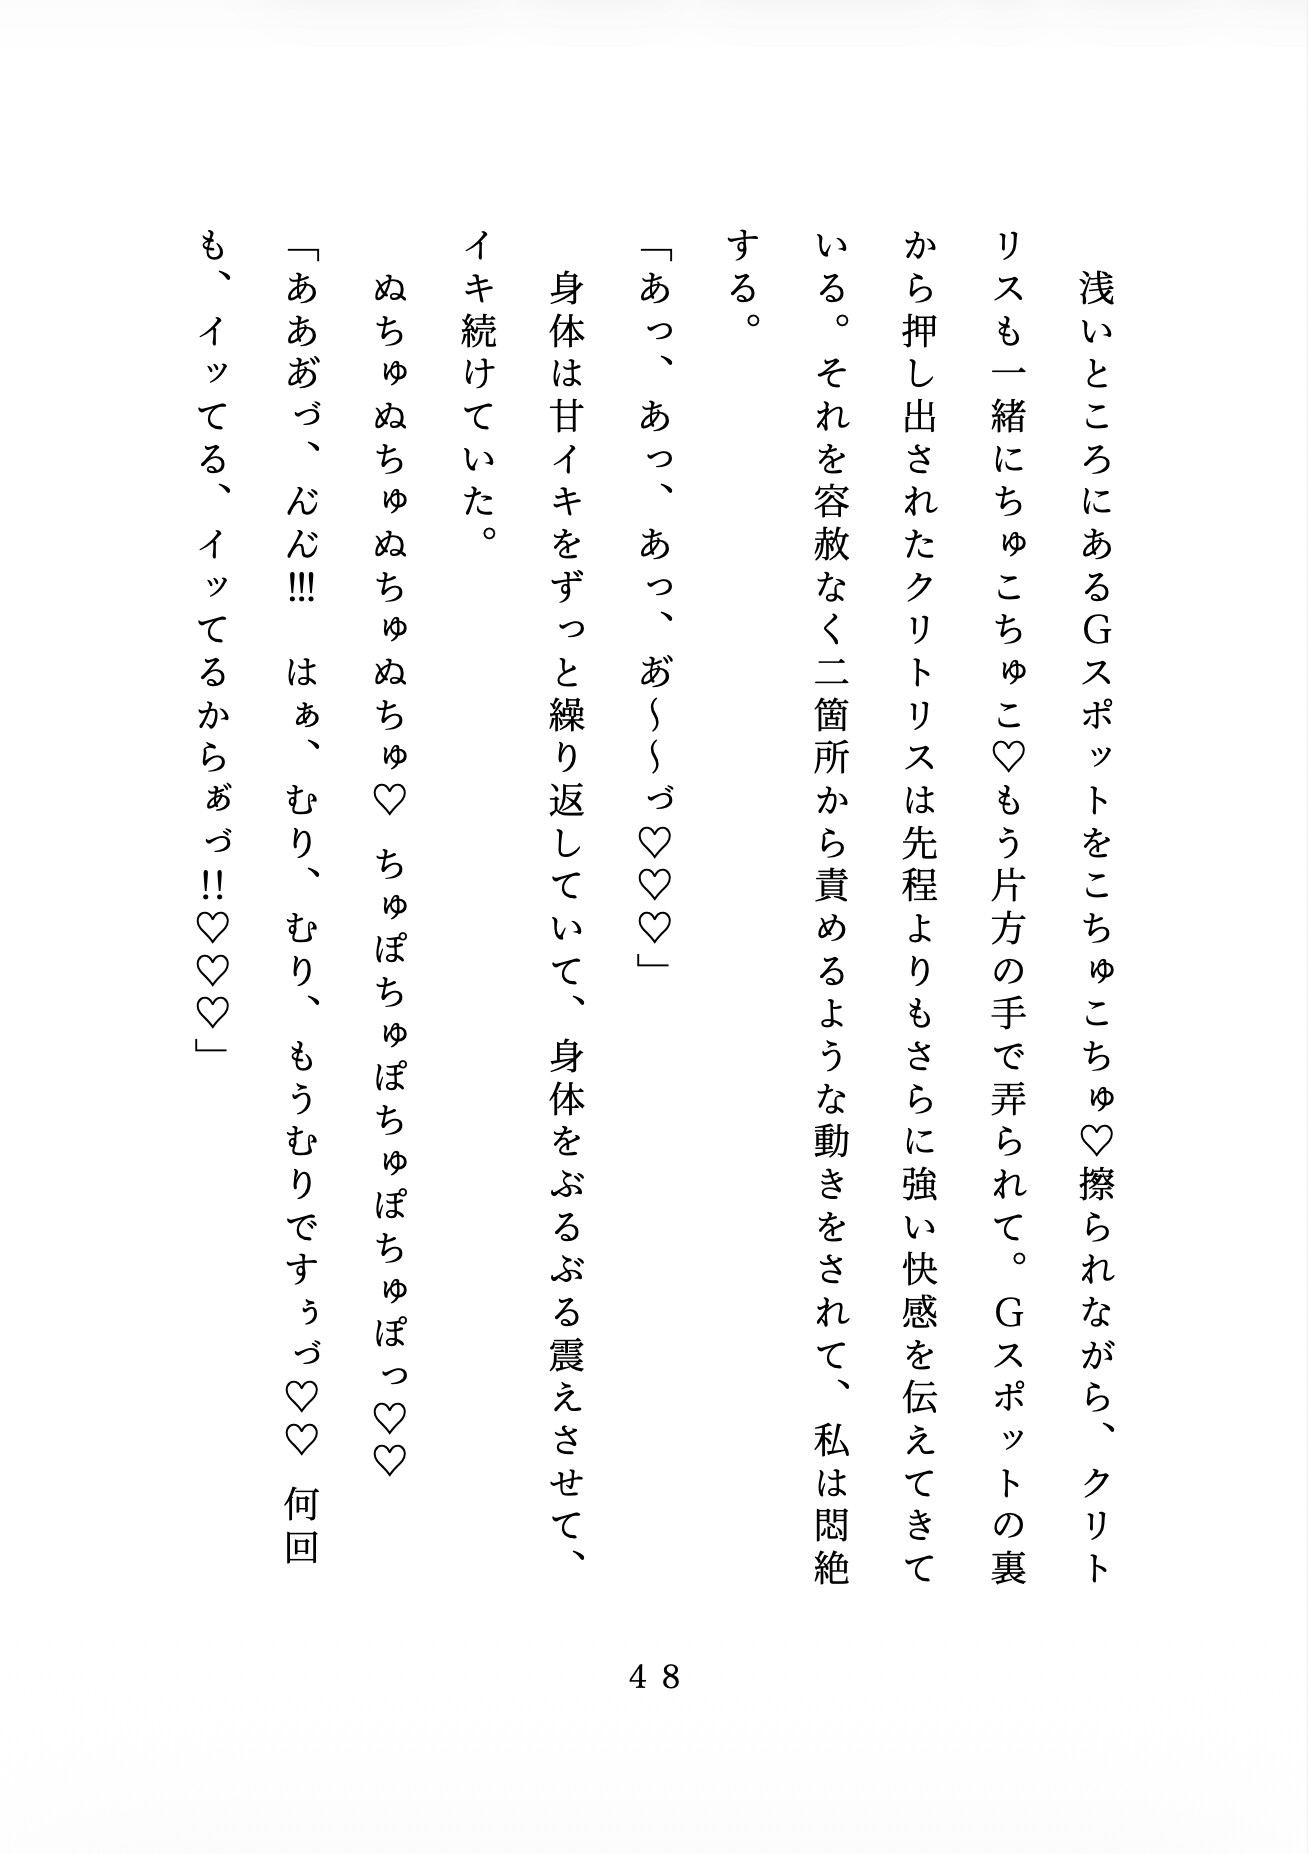 浅いところにあるＧスポットをこちゅこちゅ♡擦られながら、クリト
リスも一緒にちゅこちゅこ♡もう片方の手で弄られて。Ｇスポットの裏
から押し出されたクリトリスは先程よりもさらに強い快感を伝えてきて
いる。それを容赦なく二箇所から責めるような動きをされて、私は悶絶
する。
「あっ、あっ、あっ、あ゙～～っ゙♡♡♡」
身体は甘イキをずっと繰り返していて、身体をぶるぶる震えさせて、
イキ続けていた。
ぬちゅぬちゅぬちゅぬちゅ♡　ちゅぽちゅぽちゅぽちゅぽっ♡♡
「あああ゙っ゙、ん゙ん゙!!!　はぁ、むり、むり、もうむりですぅっ゙♡♡　何回
も、イッてる、イッてるからぁ゙っ゙!!♡♡♡」
48